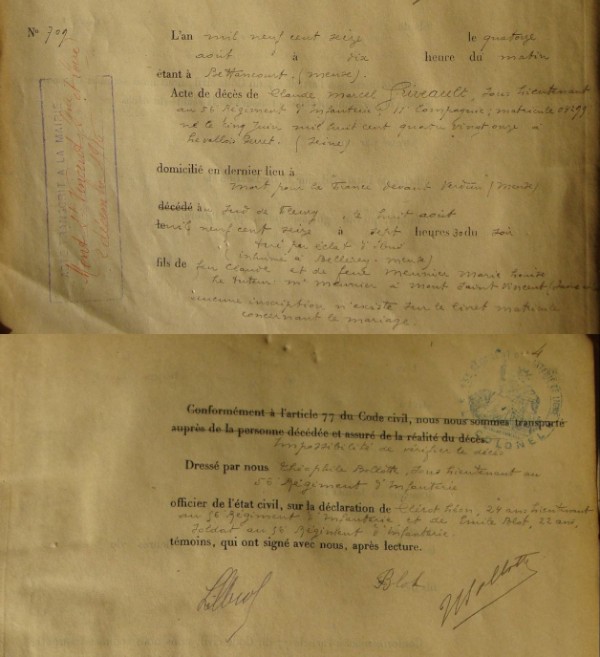 N° 709
L'an mil neuf cent seize le quatorze
août à dix heure du matin
étant à Bettancourt. (Meuse).
Acte de décès de Claude Marcel Sous Lieutenant
au 56 Régiment d'Infanterie, 11e Compagnie; matricule
né le cinq Juin mil huit cent quatre vingt onze à
Levallois Perret. (Seine)
domicilié en dernier lieu à
mort pour la France devant Verdun (Meuse)
décédé à Sud de Fleury, le huit août
le mil neuf cent seize à sept heures 30 du soir
tué par éclat d'obus
inhumé à Belleray. Meuse)
fils de feu Claude et de feue Meunier Marie Louise
Le tuteur: Mr Meunier à Mont Saint Vincent
aucune inscription n'existe sur le livret matricule
concernant le mariage.
A LA MAIRIE
Mont St Vincent
4
Conformément à l'article 77 du Code civil, nous nous sommes transporté
auprès de la personne décédée et assuré de la réalité du décès.
Impossibilité de vérifier le décès
Dressé par nous Théophile Bollotte, Sous Lieutenant au
56 Régiment d'Infanterie
officier de l'état civil, sur la déclaration de 24 ans Lieutenant
au 56 Régiment d'Infanterie et de Emile Blot, 22 ans,
Soldat au 56 Régiment d'Infanterie.
témoins, qui ont signé avec nous, après lecture.
Blot